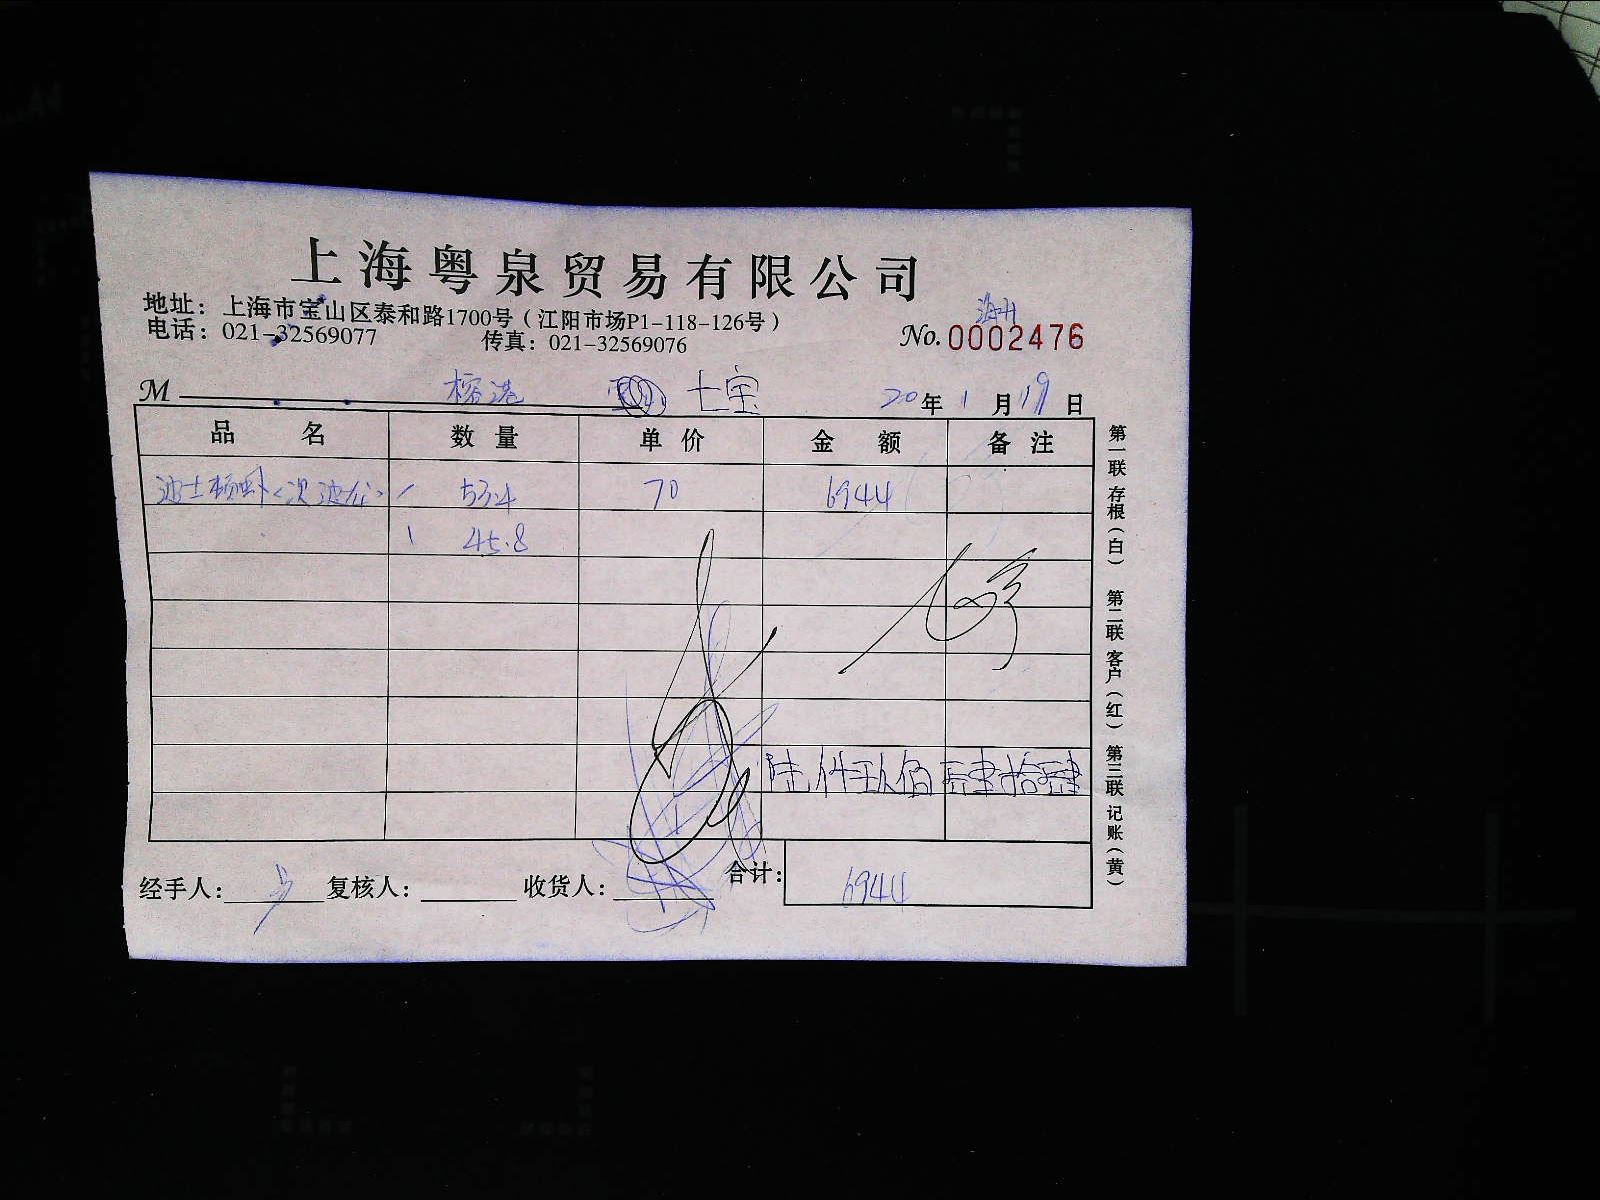 上海粤泉贸易有限公司
地址：上海市宝山区泰和路1700号（江阳市场P1-118-126号）
电话：021-32569077 传真：021-32569076
No. 0002476
M 榕港 七宝 20年1月19日
品名 数量 单价 金额 备注
波士顿 1 53.4 70 6944
1 45.8
陆仟玖佰肆拾肆
经手人： 复核人： 收货人： 合计： 6944
第一联 存根（白） 第二联 客户（红） 第三联 记账（黄）